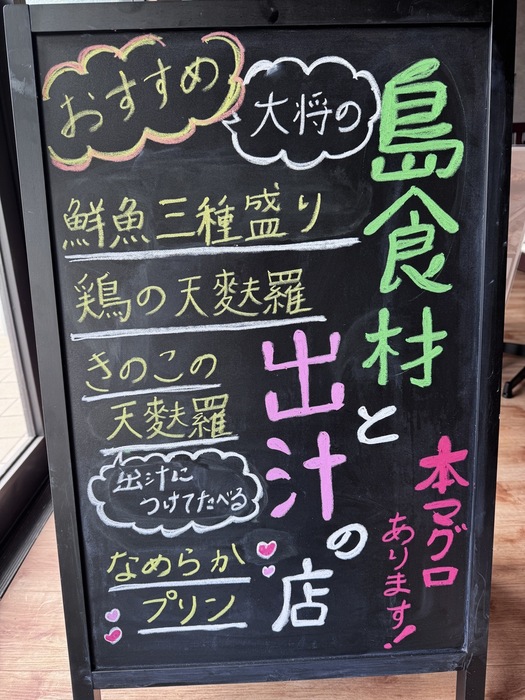 島食材と
出汁の店
本マグロ
あります!
大将の
おすすめ
鮮魚三種盛り
鶏の天麩羅
きのこの
天麩羅
出汁に
つけてたべる
なめらか
プリン